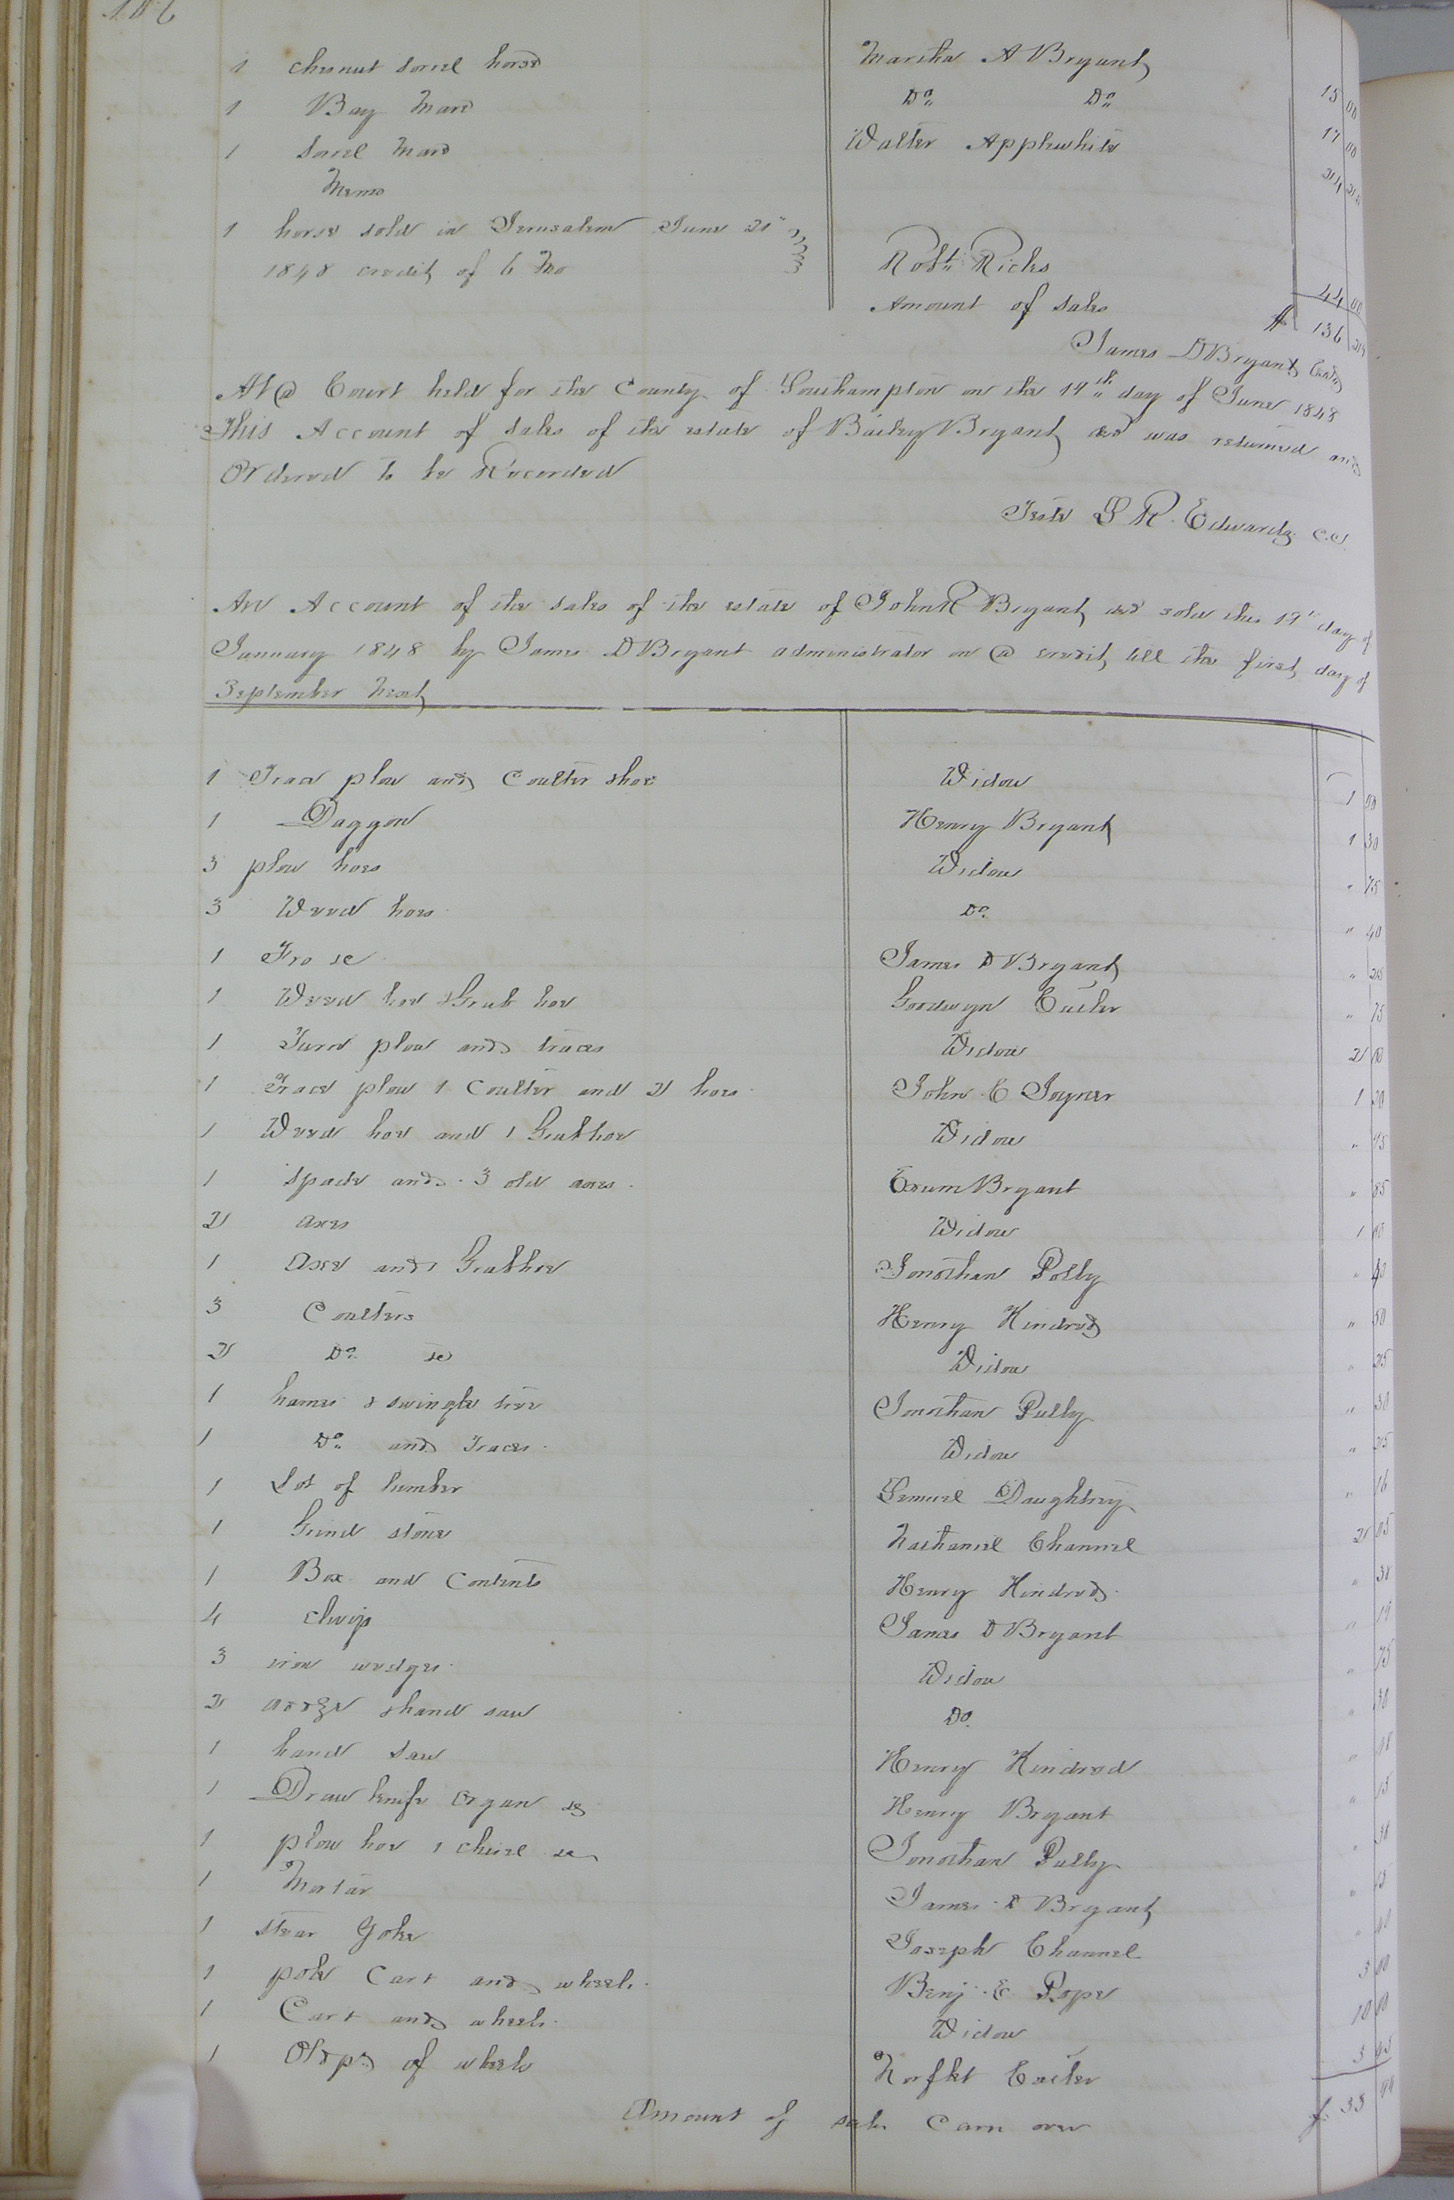 1 chesnut sorrel horse Martha A Bryant 15 00
1 Bay Mare Do Do 17 00
1 Sorrel Mare Walter Applewhite
Memo
1 horse sold in Jerusalem June 21st
1848 credit of 6 Mo Robt Ricks 44 00
Amount of Sales $ 136
James D Bryant
At a Court held for the County of Southampton on the 19th day of June 1848
This Account of Sales of the estate of Bailey Bryant decd was returned and
Ordered to be Recorded
Teste L R Edwards C.C.
An Account of the sales of the estate of John R Bryant decd sold this 19th day of
January 1848 by James D Bryant administrator on a credit till the first day of
September Next
1 Trace plow and Coulter shoe Widow 1 00
1 Daggon Henry Bryant 1 30
3 plow hoes Widow " 75
3 Weed hoes Do " 40
1 Fro &c James D Bryant " 25
1 Weed hoe & Grub hoe Goodwyn Butler " 75
1 Turn plow and traces Widow 2 00
1 Trace plow 1 Coulter and 2 hoes John E Joyner 1 20
1 Weed hoe and 1 Grubhoe Widow " 45
1 Spade and 3 old axes Exum Bryant " 85
2 axes Widow 1
1 axe and 1 Grubhoe Jonathan Pulley "
3 Coulters Henry Kindred " 50
2 Do &c Widow " 25
1 hames & swingle tree Jonathan Pulley " 30
1 Do and Traces Widow " 25
1 Lot of lumber Lemuel Daughtrey " 16
1 Grind stone Nathaniel Channel 2 05
1 Box and Contents Henry Kindred " 38
4 Clevys James D Bryant "
3 iron wedges Widow " 75
2 & hand saw Do " 30
1 hand saw Henry Kindred "
1 Draw knife &c Henry Bryant "
1 plow hoe 1 chisel &c Jonathan Pulley "
1 Mortar James D Bryant "
1 stear Yoke Joseph Channel "
1 pole Cart and wheels Benj E Pope 3 00
1 Cart and wheels Widow 10 00
1 Old pr of wheels Norflet 3
Amount of sales Carrd over $ 33